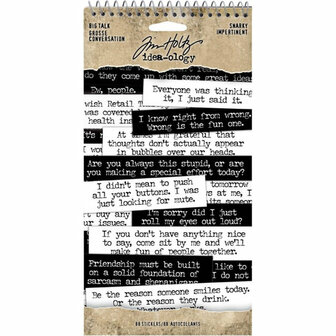 BIG TALK
GROSSE
CONVERSATION
Tim Holtz
idea-ology
SNARKY
IMPERTINENT
do they come up with some great ideas
Ew, people.
Everyone was thinking
it, I just said it.
wish Retail T
was covered
health ins
I know right from wrong.
Wrong is the fun one.
At times I'm grateful that
thoughts don't actually appear
in bubbles over our heads.
Are you always this stupid, or are
you making a special effort today?
I didn't mean to push
all your buttons. I was
just looking for mute.
tomorrow
I'm sorry did I just
roll my eyes out loud?
t buy any
our issues.
If you don't have anything nice
to say, come sit by me and we'll
make fun of people together.
Friendship must be built
on a solid foundation of
sarcasm and shenanigans.
like to
I do not
Be the reason someone smiles today.
Or the reason they drink.
Whatever
88 STICKERS/88 AUTOCOLLANTS